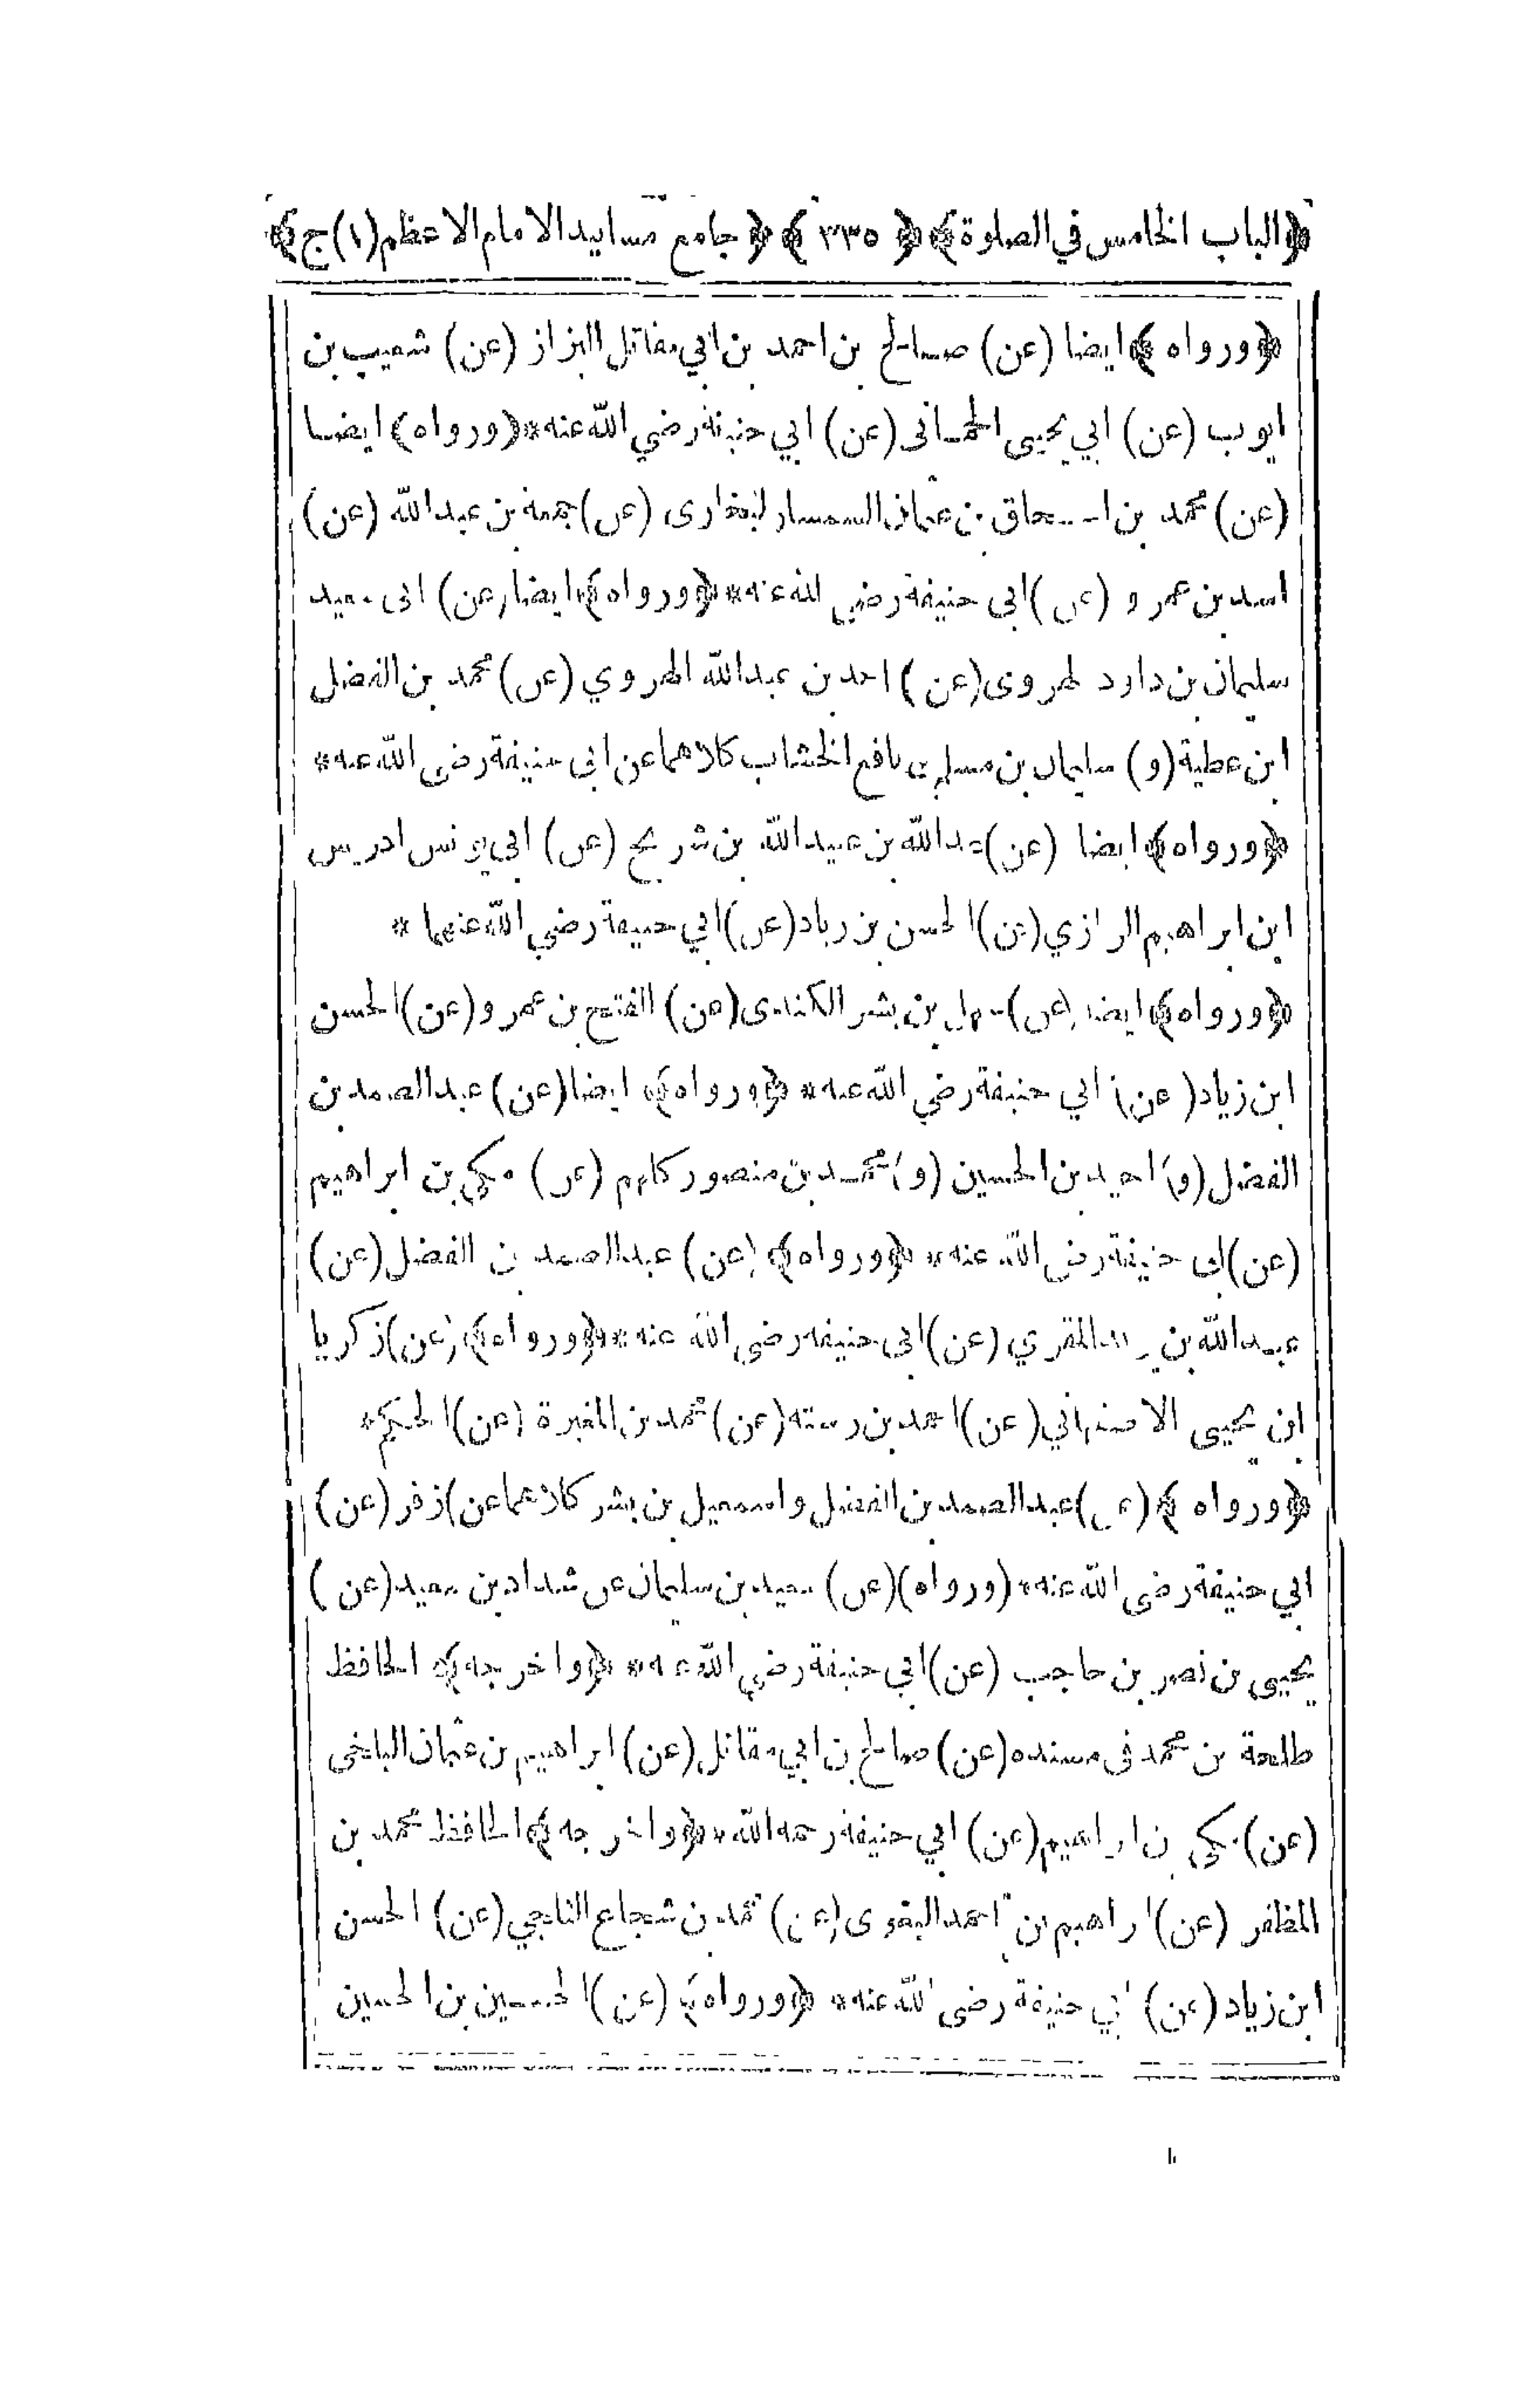 ﴿الباب الخامس في الصلوة﴾ ﴿٣٣٥﴾ ﴿جامع مسانيد الامام الاعظم (١) ج﴾
﴿ورواه﴾ ايضا (عن) صالح بن احمد بن ابي مقاتل البزاز (عن) شعيب بن
ايوب (عن) ابي يحيى الحمانى (عن) ابي حنيفة رضي الله عنه * (ورواه) ايضا
(عن) محمد بن اسحاق بن عثمان السمسار البخارى (عن) جمعة بن عبدالله (عن)
اسد بن عمرو (عن) ابى حنيفة رضي الله عنه * ﴿ورواه﴾ ايضا (عن) ابى سعيد
سليمان بن داود الهروى (عن) احمد بن عبدالله الهروي (عن) محمد بن الفضل
ابن عطية (و) سليمان بن مسلم بن نافع الخشاب كلاهما عن ابى حنيفة رضي الله عنه *
﴿ورواه﴾ ايضا (عن) عبدالله بن عبيدالله بن شريح (عن) ابى يونس ادريس
ابن ابراهيم الرازي (عن) الحسن بن زياد (عن) ابي حنيفة رضي الله عنهما *
﴿ورواه﴾ ايضا (عن) سهل بن بشر الكندى (عن) الفتح بن عمرو (عن) الحسن
ابن زياد (عن) ابي حنيفة رضي الله عنه * ﴿ورواه﴾ ايضا (عن) عبدالصمد بن
الفضل (و) احيد بن الحسين (و) محمد بن منصور كلهم (عن) مكي بن ابراهيم
(عن) ابى حنيفة رضي الله عنه * ﴿ورواه﴾ (عن) عبدالصمد بن الفضل (عن)
عبدالله بن يزيد المقري (عن) ابى حنيفة رضي الله عنه * ﴿ورواه﴾ (عن) زكريا
ابن يحيى الاصفهاني (عن) احمد بن رسته (عن) محمد بن المغيرة (عن) الحكم *
﴿ورواه﴾ (عن) عبدالصمد بن الفضل واسمعيل بن بشر كلاهما عن) زفر (عن)
ابي حنيفة رضى الله عنه * (ورواه) (عن) سعيد بن سليمان عن شداد بن سعيد (عن)
يحيى بن نصر بن حاجب (عن) ابي حنيفة رضي الله عنه * ﴿واخرجه﴾ الحافظ
طلحة بن محمد فى مسنده (عن) صالح بن ابي مقاتل (عن) ابراهيم بن عثمان البلخى
(عن) مكي بن ابراهيم (عن) ابي حنيفة رحمه الله * ﴿واخرجه﴾ الحافظ محمد بن
المظفر (عن) ابراهيم بن احمد البغوى (عن) محمد بن شجاع الثلجي (عن) الحسن
ابن زياد (عن) ابي حنيفة رضى الله عنه * ﴿ورواه﴾ (عن) الحسين بن الحسين